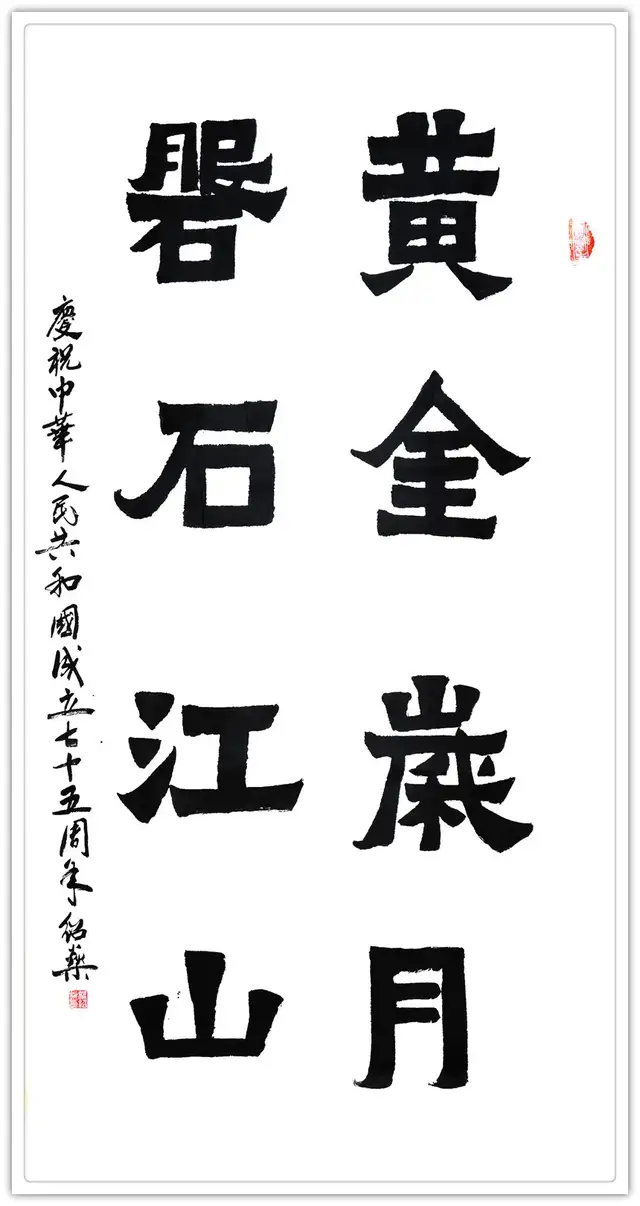 黄金歲月
磐石江山
慶祝中華人民共和國成立七十五周年 紹棻